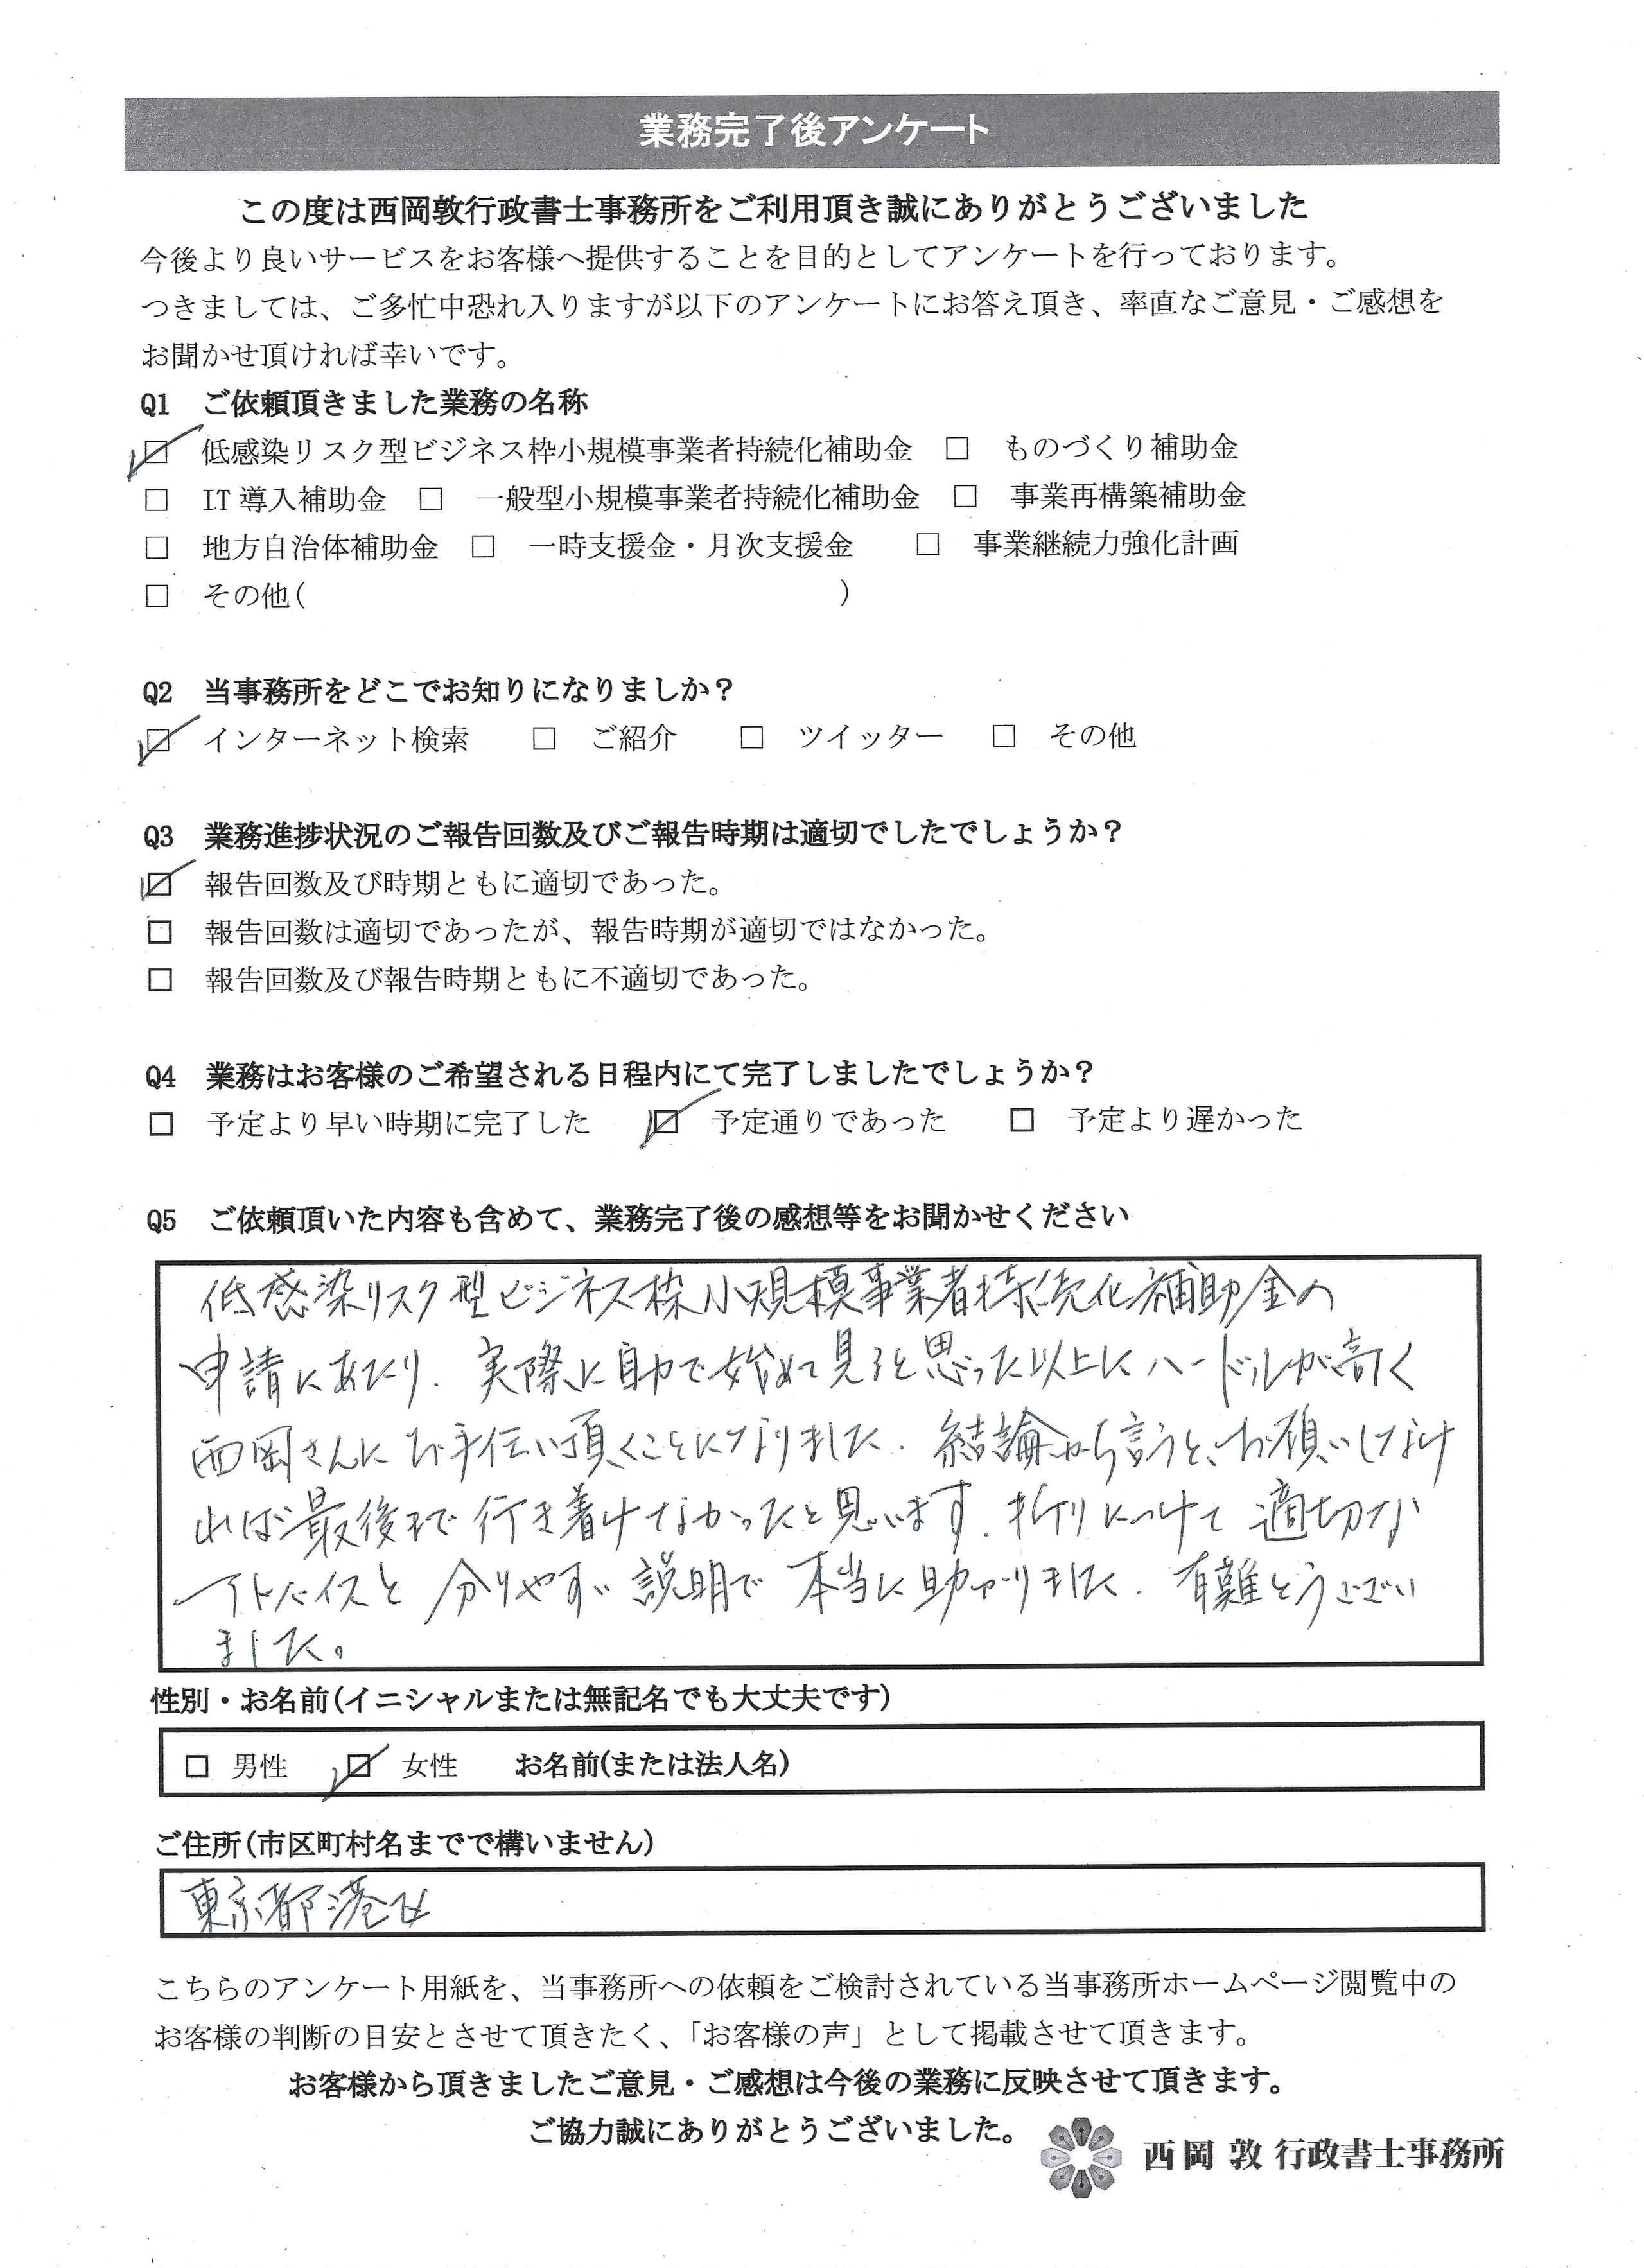 業務完了後アンケート
この度は西岡敦行政書士事務所をご利用頂き誠にありがとうございました
今後より良いサービスをお客様へ提供することを目的としてアンケートを行っております。
つきましては、ご多忙中恐れ入りますが以下のアンケートにお答え頂き、率直なご意見・ご感想を
お聞かせ頂ければ幸いです。
Q1 ご依頼頂きました業務の名称
☑ 低感染リスク型ビジネス枠小規模事業者持続化補助金 □ ものづくり補助金
□ IT導入補助金 □ 一般型小規模事業者持続化補助金 □ 事業再構築補助金
□ 地方自治体補助金 □ 一時支援金・月次支援金 □ 事業継続力強化計画
□ その他( )
Q2 当事務所をどこでお知りになりましか？
☑ インターネット検索 □ ご紹介 □ ツイッター □ その他
Q3 業務進捗状況のご報告回数及びご報告時期は適切でしたでしょうか？
☑ 報告回数及び時期ともに適切であった。
□ 報告回数は適切であったが、報告時期が適切ではなかった。
□ 報告回数及び報告時期ともに不適切であった。
Q4 業務はお客様のご希望される日程内にて完了しましたでしょうか？
□ 予定より早い時期に完了した ☑ 予定通りであった □ 予定より遅かった
Q5 ご依頼頂いた内容も含めて、業務完了後の感想等をお聞かせください
低感染リスク型ビジネス枠小規模事業者持続化補助金の
申請にあたり、実際に自力で始めて見ると思った以上にハードルが高く
西岡さんにお手伝い頂くことになりました。結論から言うと、お願いしなけ
れば最後まで行き着けなかったと思います。折りにつけて適切な
アドバイスと分りやすい説明で本当に助かりました。有難とうござい
ました。
性別・お名前(イニシャルまたは無記名でも大丈夫です)
□ 男性 ☑ 女性 お名前(または法人名)
ご住所(市区町村名までで構いません)
東京都港区
こちらのアンケート用紙を、当事務所への依頼をご検討されている当事務所ホームページ閲覧中の
お客様の判断の目安とさせて頂きたく、「お客様の声」として掲載させて頂きます。
お客様から頂きましたご意見・ご感想は今後の業務に反映させて頂きます。
ご協力誠にありがとうございました。
西岡 敦 行政書士事務所